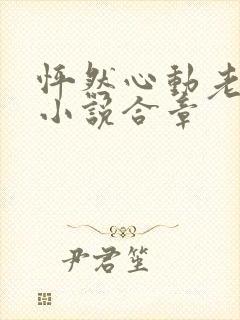 怦然心动老
小说合章
尹君笙